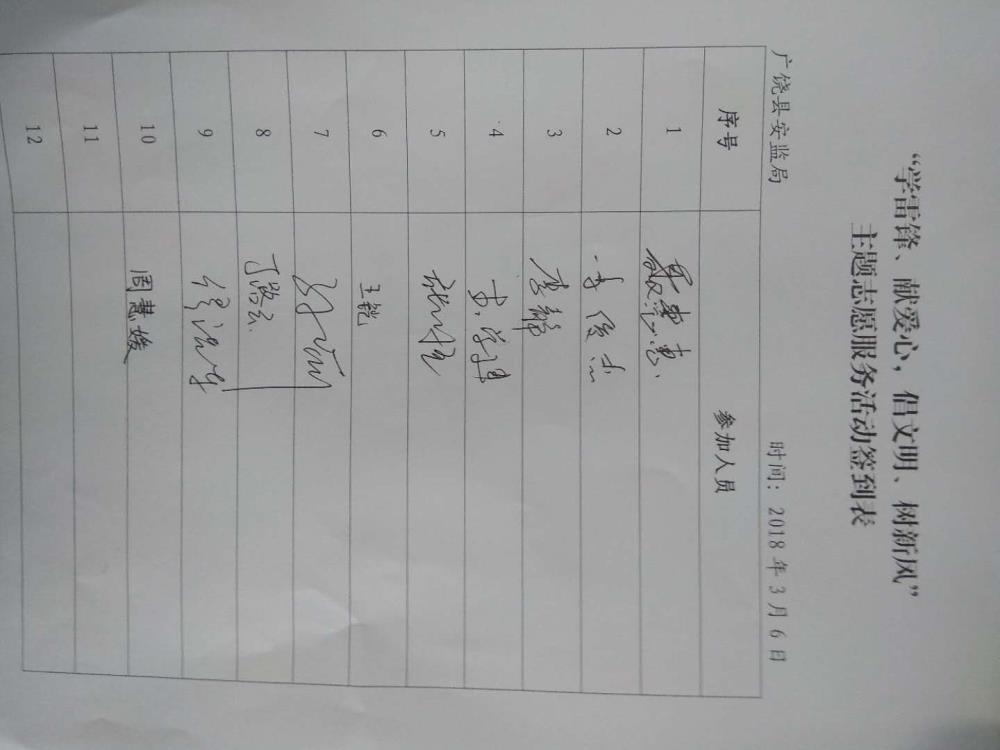 “学雷锋、献爱心，倡文明、树新风”
主题志愿服务活动签到表
广饶县安监局 时间：2018年3月6日
序号 参加人员
1
2 李俊杰
3 李静
4
5
6 王锐
7
8 丁路云
9
10 周慧媛
11
12